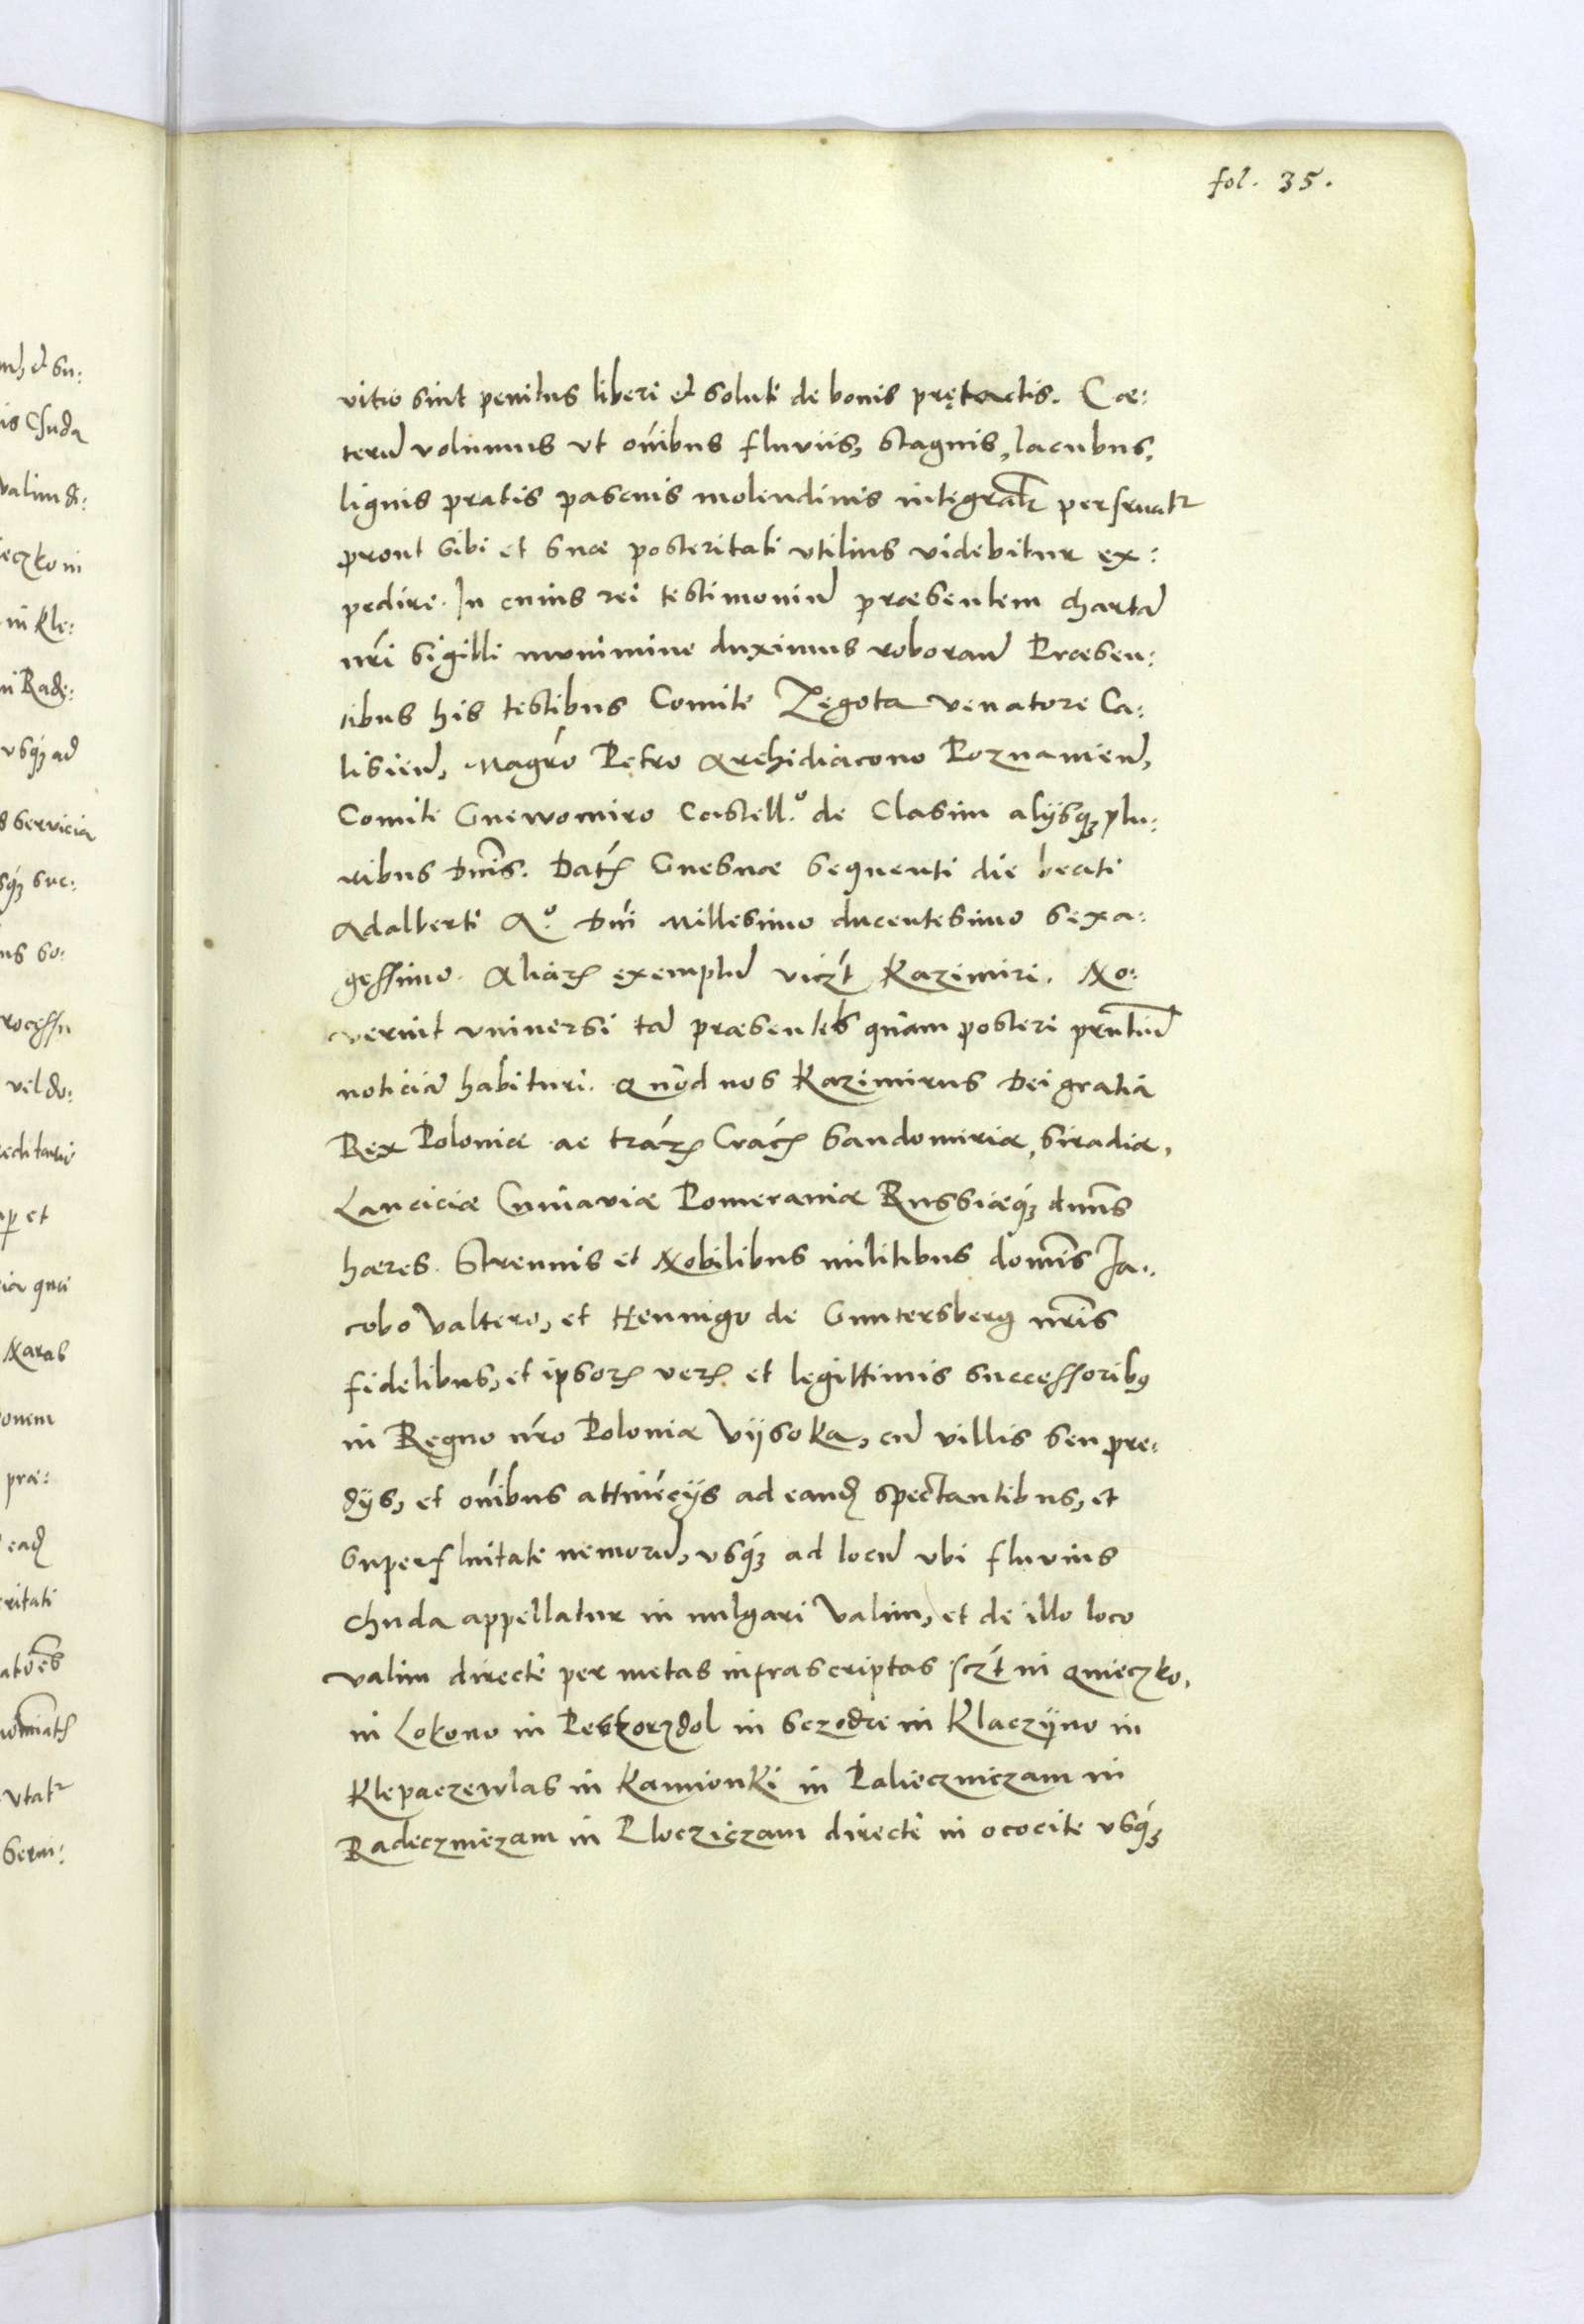 fol. 35.
vitio sint penitus liberi et soluti de bonis prętactis. Cæ:
terũ volumus vt oĩbus fluviis, stagnis, lacubus,
lignis pratis pascuis molendinis integratr perfruatr
prout sibi et suæ posteritati vtilius videbitur ex:
pedire. In cuius rei testimoniũ præsentem chartã
nr̃i sigilli munimine duximus roborand Præsen:
tibus his testibus Comite Zegota venatore Ca:
lisień, Magr̃o Petro Archidiacono Poznanień,
Comite Gnewomiro Castell.º de Clasim alijsq; plu:
ribus Dñis. Datꝝ Gnesnæ sequenti die beati
Adalberti Aº. Dñi Millesimo ducentesimo sexa:
gessimo. Aliaꝝ exemplũ viczt Kazimiri. No:
verint vniversi tã præsentes quam posteri pñtiũ
noticiã habituri. Quod nos Kazimirus Dei gratia
Rex Poloniæ ac trãꝝ Cracꝝ Sandomiriæ, Siradiæ,
Lanciciæ Cuiaviæ Pomeraniæ Russiæq; dnũs
hæres. Strenuis et Nobilibus militibus domĩs Ja:
cobo Valtero, et Hennigo de Guntersberg nr̃is
fidelibus, et ipsoꝝ veꝝ et legittimis successoribꝰ
in Regno nr̃o Poloniæ Vijsoka, cũ villis seu pre:
dijs, et oĩbus attinẽcijs ad eandẽ spectantibus, et
superfluitate nemorũ, vsq; ad locũ vbi fluvius
Chuda appellatur in uulgari Valim, et de illo loco
valim directe per metas infrascriptas sczt in Qnieczko,
in Lokono in Peskorzdol in Sczodre in Klaczijno in
Klepaczewlas in Kamionki in Palieczniczam in
Radeczniczam in Plocziczam directe in ococite vsq;